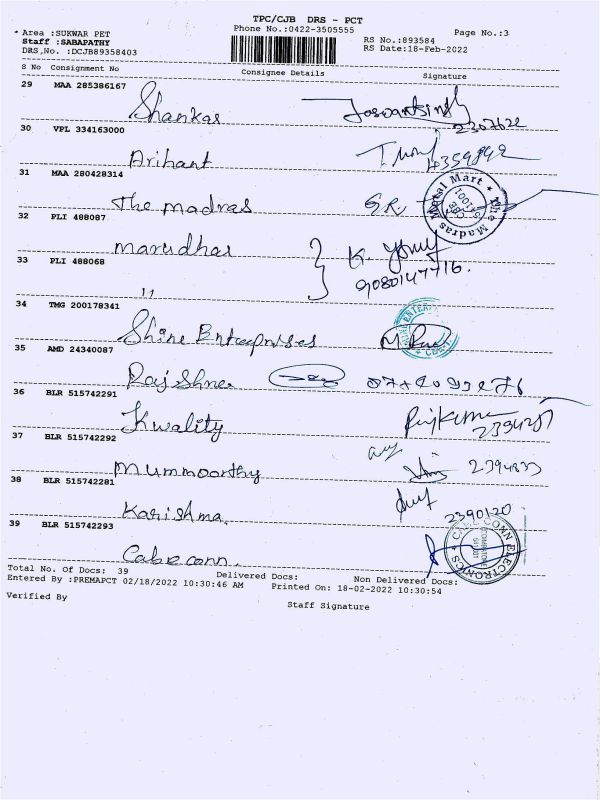 TPC/CJB DRS - PCT
Area :SUKWAR PET Phone No.:0422-3505555 Page No.:3
Staff :SABAPATHY RS No.:893584
DRS,No. :DCJB89358403 RS Date:18-Feb-2022
S No Consignment No Consignee Details Signature
29 MAA 285386167
Shankar Jaswantsingh
2307622
30 VPL 334163000
Arihant 4359892
31 MAA 280428314
The madras
The Madras Metal Mart
CBE
641001
32 PLI 488087
marudhar K.
33 PLI 488068 9080147716.
11
34 TMG 200178341
Shine Enterprises
35 AMD 24340087
Raj Shree
36 BLR 515742291
Kwality Rajkumar
37 BLR 515742292
Mummoorthy
38 BLR 515742281
Karishma. 2390120
39 BLR 515742293
Cabeconn. CABE CONN ELECTRONICS
Total No. of Docs: 39 Delivered Docs: Non Delivered Docs:
Entered By :PREMAPCT 02/18/2022 10:30:46 AM Printed On: 18-02-2022 10:30:54
Verified By Staff Signature